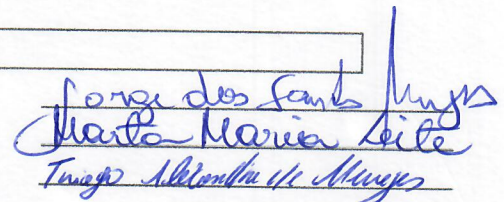 Jorge dos Santos Menezes
Marta Maria Leite
Tiago Alexandre de Menezes